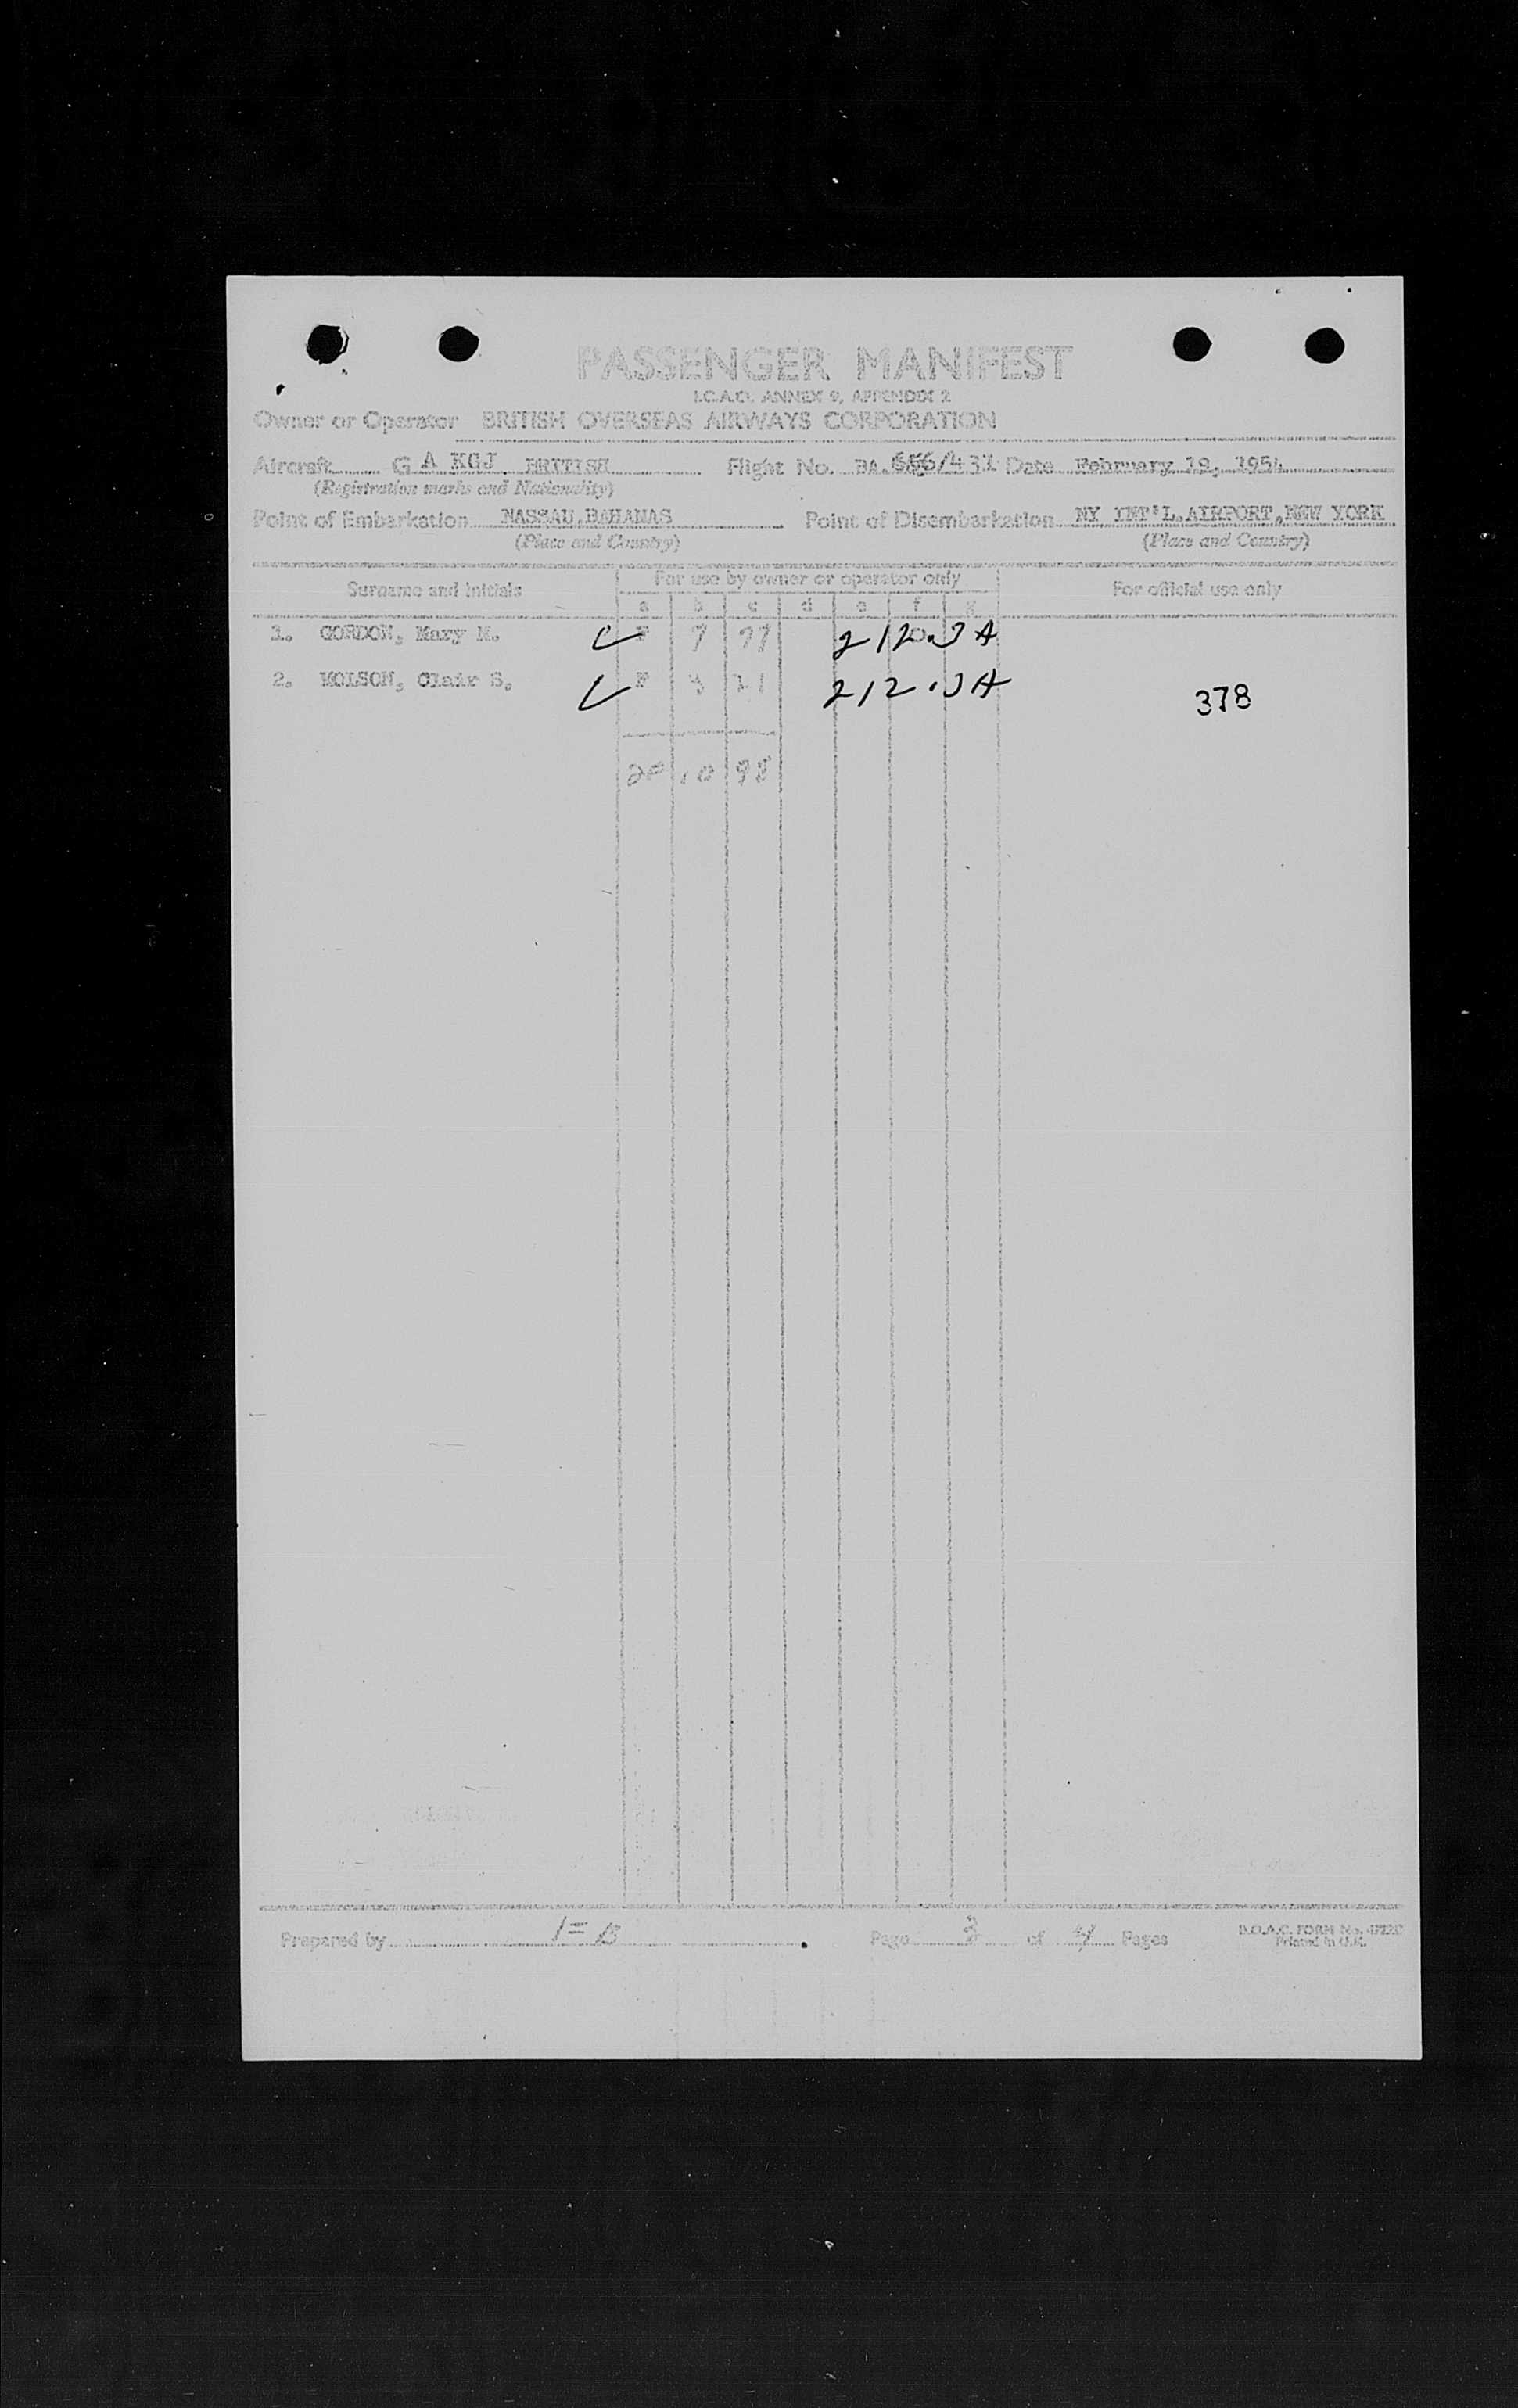 PASSENGER MANIFEST
I.C.A.O. ANNEX 9, APPENDIX 2
Owner or Operator BRITISH OVERSEAS AIRWAYS CORPORATION
Aircraft G A KGJ BRITISH Flight No. BA. /431 Date February 19, 1954
(Registration marks and Nationality)
Point of Embarkation NASSAU,BAHAMAS Point of Disembarkation NY INT'L.AIRPORT,NEW YORK
(Place and Country) (Place and Country)
Surname and initials For use by owner or operator only For official use only
a b c d e f g
1. GORDON, Mary M. F 7 77 2120.JA
2. MOLSON, Clair S. F 3 21 212.JA
378
2F 10 98
Prepared by Page 3 of 4 Pages
B.O.A.C. FORM No.
Printed in U.K.